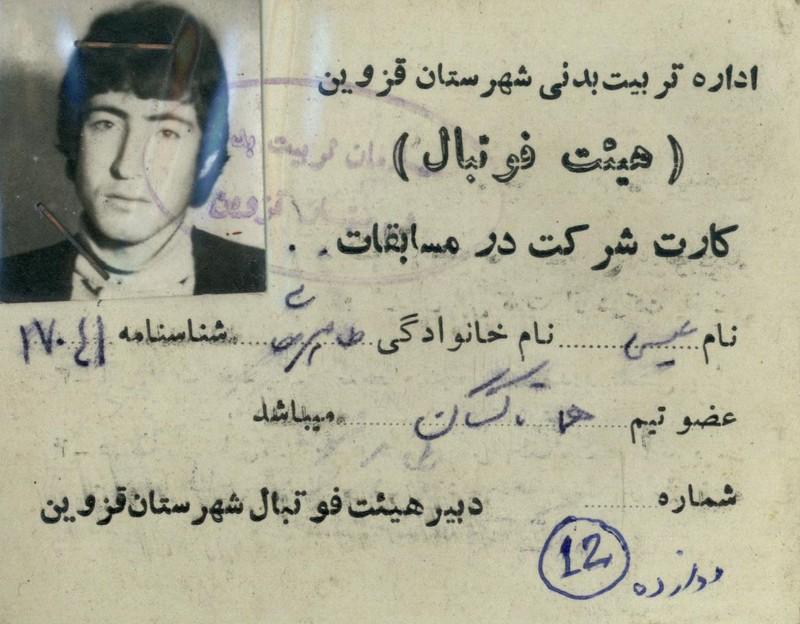 اداره تربیت‌بدنی شهرستان قزوین
(هیئت فوتبال)
کارت شرکت در مسابقات . .
نام ........ نام خانوادگی ........ شناسنامه
عضو تیم ........ میباشد
شماره ........
دبیر هیئت فوتبال شهرستان قزوین
12
دوازده
سازمان تربیت
قزوین